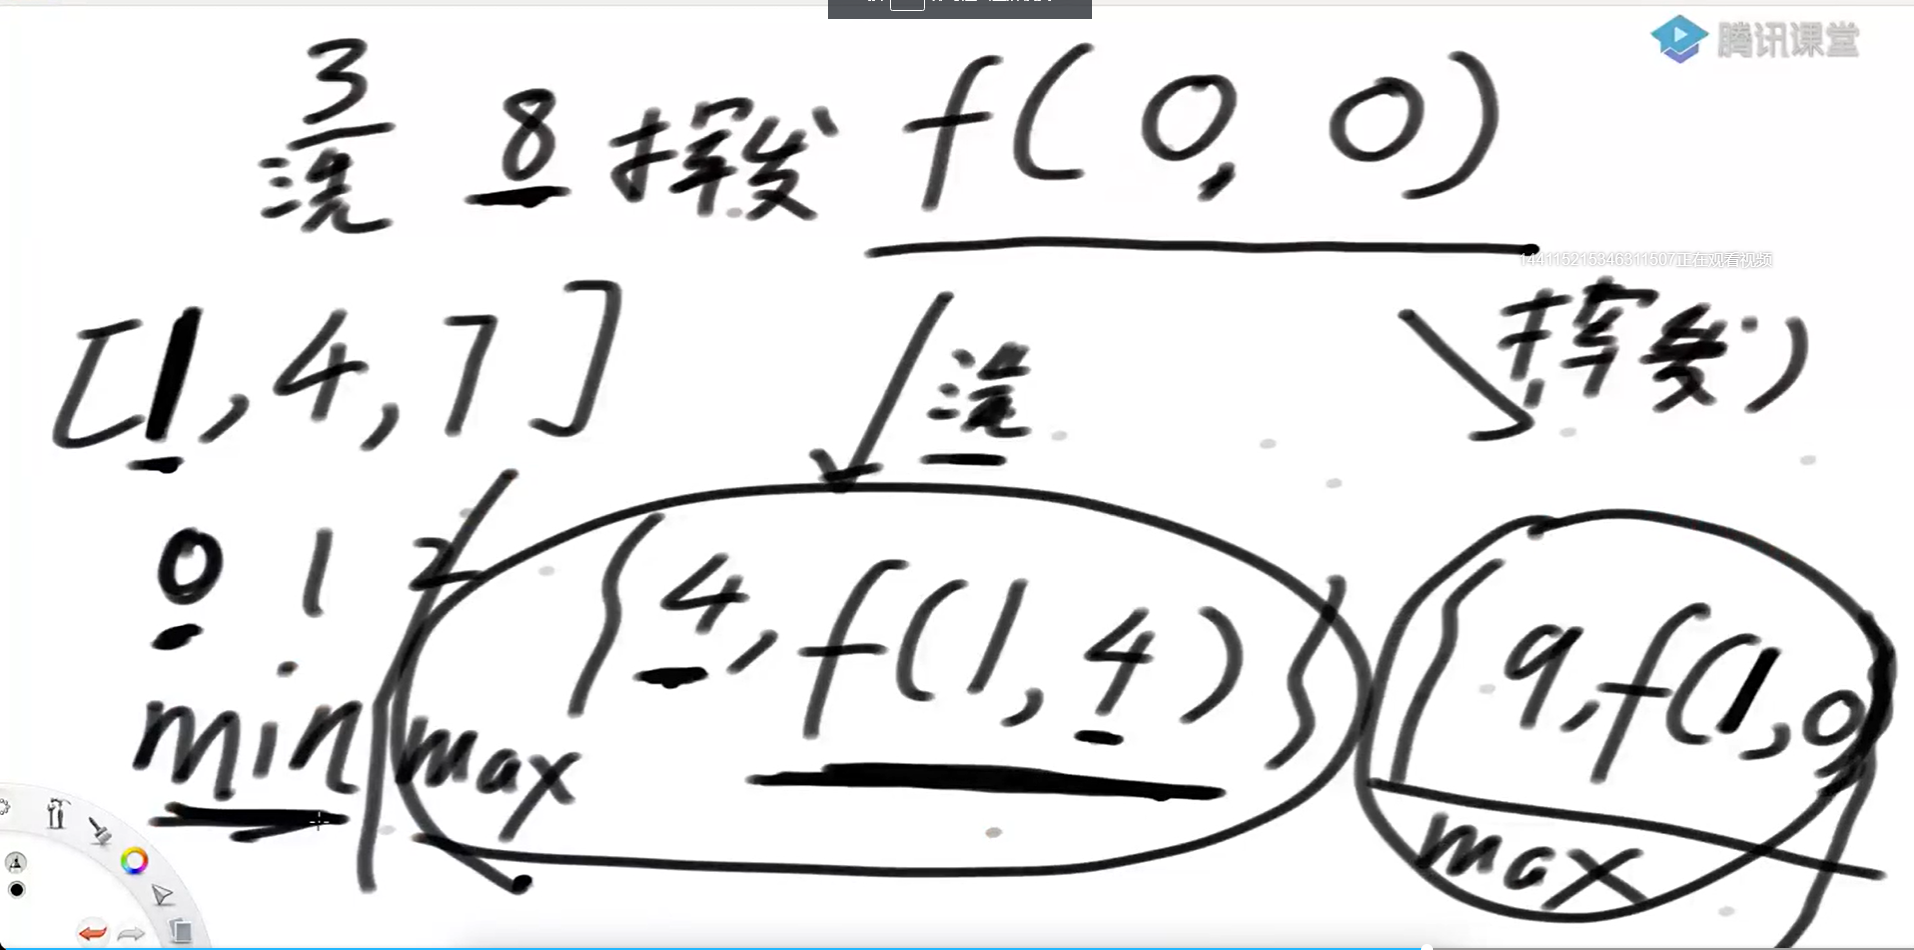 腾讯课堂
3
洗 8 挥发 f(0, 0)
144115215346311507正在观看视频
[1, 4, 7] 洗 挥发)
0 1 2
min { max {4, f(1, 4)} {9, f(1, 0)
max